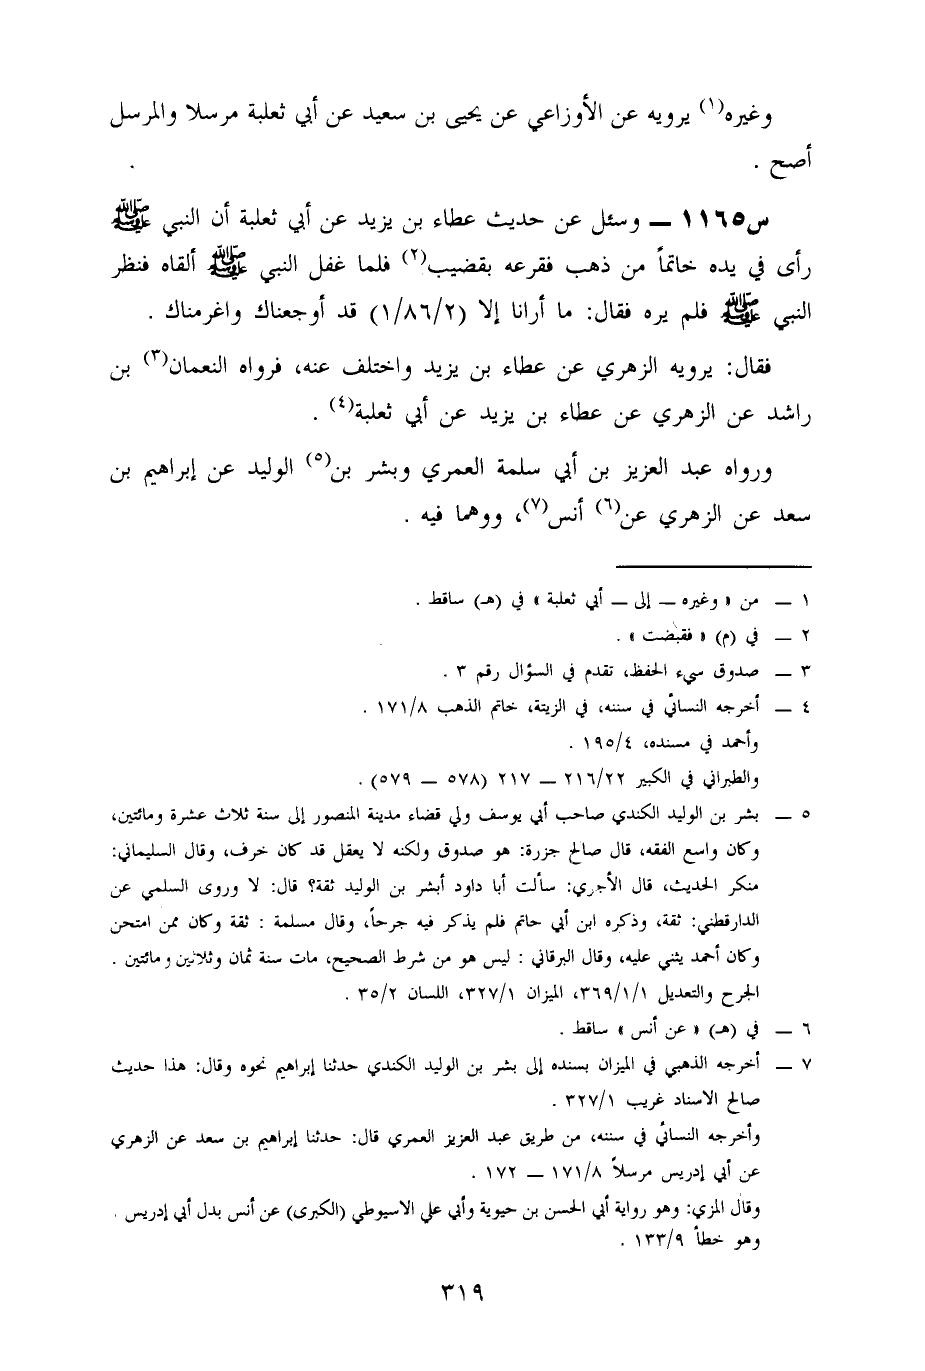 وغيره(١) يرويه عن الأوزاعي عن يحيى بن سعيد عن أبي ثعلبة مرسلا والمرسل
أصح .
س١١٦٥ ــ وسئل عن حديث عطاء بن يزيد عن أبي ثعلبة أن النبي ﷺ
رأى في يده خاتماً من ذهب فقرعه بقضيب(٢) فلما غفل النبي ﷺ ألقاه فنظر
النبي ﷺ فلم يره فقال: ما أرانا إلا (١/٨٦/٢) قد أوجعناك واغرمناك .
فقال: يرويه الزهري عن عطاء بن يزيد واختلف عنه، فرواه النعمان(٣) بن
راشد عن الزهري عن عطاء بن يزيد عن أبي ثعلبة(٤) .
ورواه عبد العزيز بن أبي سلمة العمري وبشر بن(٥) الوليد عن إبراهيم بن
سعد عن الزهري عن(٦) أنس(٧)، ووهما فيه .
١ ــ من « وغيره ــ إلى ــ أبي ثعلبة » في (هـ) ساقط .
٢ ــ في (م) « فقبضت » .
٣ ــ صدوق سيء الحفظ، تقدم في السؤال رقم ٣ .
٤ ــ أخرجه النسائي في سننه، في الزيتة، خاتم الذهب ١٧١/٨ .
وأحمد في مسنده، ١٩٥/٤ .
والطبراني في الكبير ٢١٦/٢٢ ــ ٢١٧ (٥٧٨ ــ ٥٧٩) .
٥ ــ بشر بن الوليد الكندي صاحب أبي يوسف ولي قضاء مدينة المنصور إلى سنة ثلاث عشرة ومائتين،
وكان واسع الفقه، قال صالح جزرة: هو صدوق ولكنه لا يعقل قد كان خرف، وقال السليماني:
منكر الحديث، قال الأجري: سألت أبا داود أبشر بن الوليد ثقة؟ قال: لا وروى السلمي عن
الدارقطني: ثقة، وذكره ابن أبي حاتم فلم يذكر فيه جرحاً، وقال مسلمة : ثقة وكان ممن امتحن
وكان أحمد يثني عليه، وقال البرقاني : ليس هو من شرط الصحيح، مات سنة ثمان وثلاثين ومائتين .
الجرح والتعديل ٣٦٩/١/١، الميزان ٣٢٧/١، اللسان ٣٥/٢ .
٦ ــ في (هـ) « عن أنس » ساقط .
٧ ــ أخرجه الذهبي في الميزان بسنده إلى بشر بن الوليد الكندي حدثنا إبراهيم نحوه وقال: هذا حديث
صالح الاسناد غريب ٣٢٧/١ .
وأخرجه النسائي في سننه، من طريق عبد العزيز العمري قال: حدثنا إبراهيم بن سعد عن الزهري
عن أبي إدريس مرسلاً ١٧١/٨ ــ ١٧٢ .
وقال المزي: وهو رواية أبي الحسن بن حيوية وأبي علي الاسيوطي (الكبرى) عن أنس بدل أبي إدريس .
وهو خطأ ١٣٣/٩ .
٣١٩